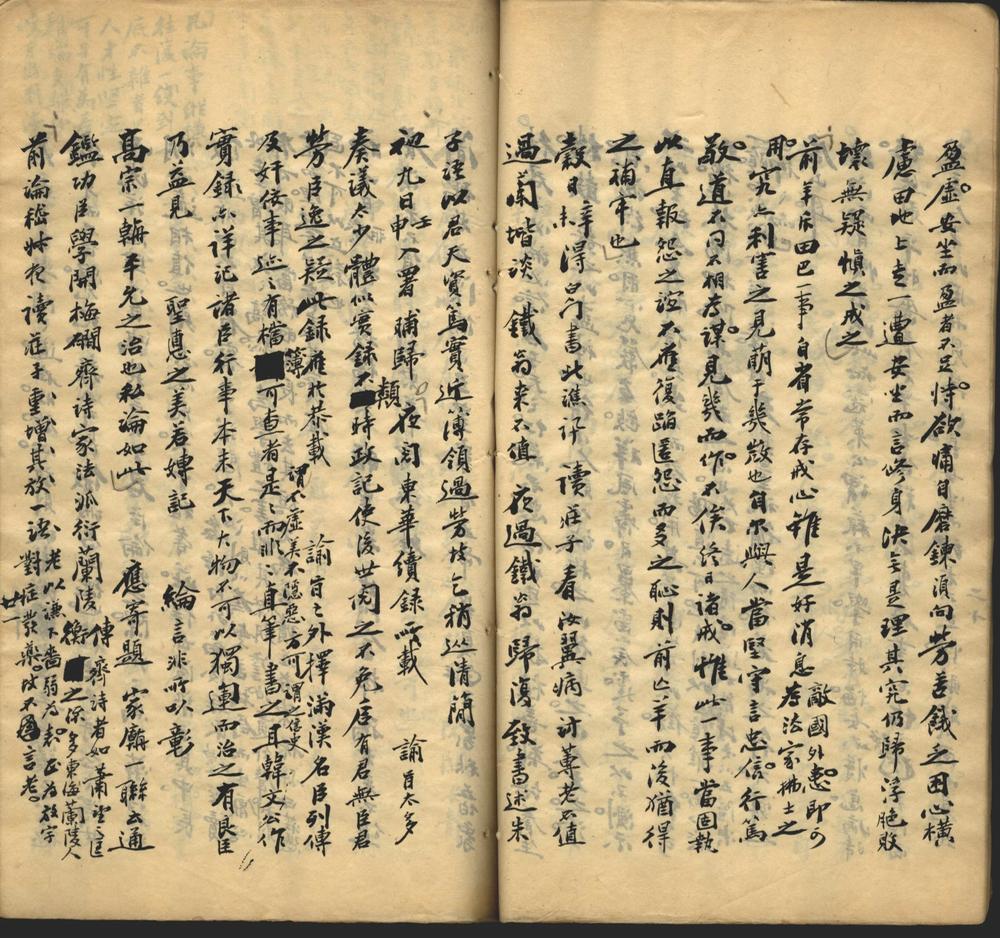 盈虛安坐而盈者不足恃欲痛自磨鍊須向勞苦餓乏困心橫
慮田地上走一遭安坐而言修身決無是理其究仍歸浮脆敗
壞無疑慎之戒之
前羊斥田巴一事自省常存戒心雖是好消息敵國外患即可
為法家拂士之
用究亦利害之見萌于幾微也自尔與人當堅守言忠信行篤
敬道不同不相為謀見幾而作不俟終日諸戒惟此一事當固執
以直報怨之誼不應復蹈匿怨而多之恥則前亡羊而後猶得
之補牢也
穀日辛未得白門書此譙訶 讀莊子 看汝翼病 訪蓴老不值
過蘭堦談 鐵翁來不值 夜過鐵翁歸復致書述朱
子語以君天資篤實近簿領過勞故乞稍盡清簡
初九日壬申入署 晡歸 夜閱東華續錄所載 諭旨太多
奏議太少體似實錄不類時政記使後世閱之不免居有君無臣君
勞臣逸之疑此錄應於恭載 諭旨之外擇滿漢名臣列傳
謂不虛美不隱惡方可謂之信史
及奸佞事迹之有檔簿可查者是是而非非直筆書之且韓文公作
實錄亦詳記諸臣行事本末天下大物不可以獨運而治之有良臣
乃益見 聖悳之美若專記 綸言非所以彰
高宗一朝平允之治也私論如此 應寄題 家廟一聯云通
鑑功臣學開梅磵齊詩家法派衍蘭陵傳齊詩者如蕭望之匡
衡之徒多東海蘭陵人
前論嵇叔夜讀莊子重增其放一語老以謙下濡弱為表正為放字
對症發藥故不言老
廿一